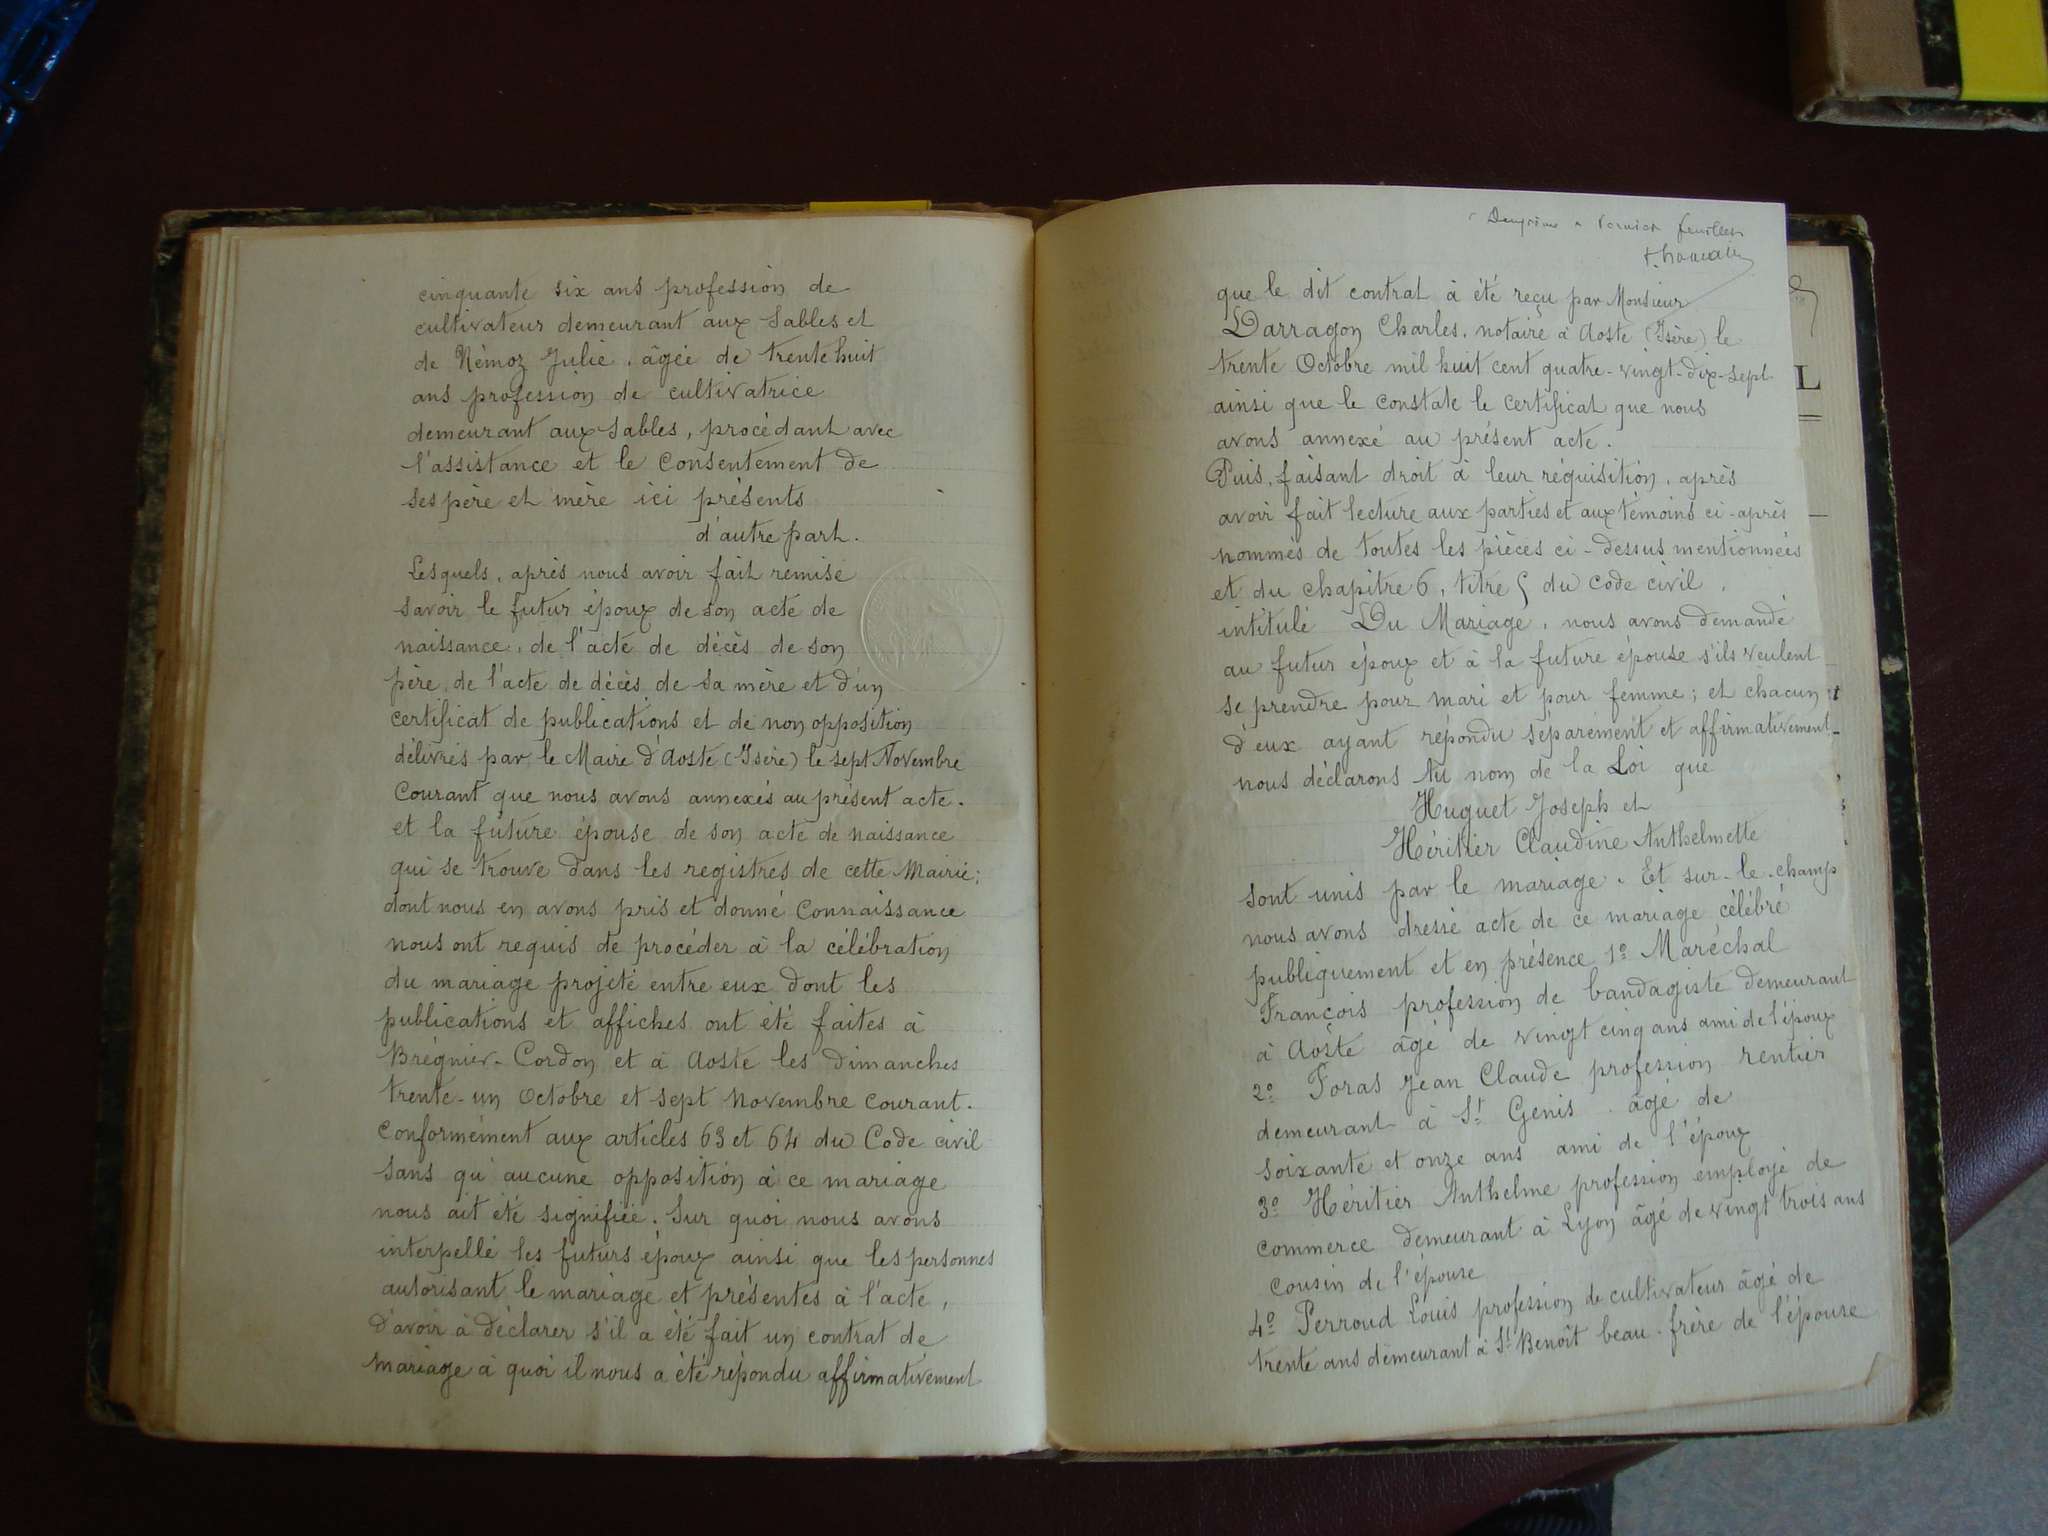 cinquante six ans profession de
cultivateur demeurant aux Sables et
de Rémoz Julie, âgée de trente huit
ans profession de cultivatrice
demeurant aux Sables, procédant avec
l'assistance et le Consentement de
ses père et mère ici présents
d'autre part.
Lesquels, après nous avoir fait remise
savoir le futur époux de son acte de
naissance, de l'acte de décès de son
père, de l'acte de décès de sa mère et d'un
certificat de publications et de non opposition
délivrés par le Maire d'Aoste (Isère) le sept Novembre
Courant que nous avons annexés au présent acte.
et la future épouse de son acte de naissance
qui se trouve dans les registres de cette Mairie;
dont nous en avons pris et donné Connaissance
nous ont requis de procéder à la célébration
du mariage projeté entre eux dont les
publications et affiches ont été faites à
Brégnier-Cordon et à Aoste les Dimanches
trente-un Octobre et sept Novembre courant.
Conformément aux articles 63 et 64 du Code civil
sans qu'aucune opposition à ce mariage
nous ait été signifiée. Sur quoi nous avons
interpellé les futurs époux ainsi que les personnes
autorisant le mariage et présentes à l'acte,
d'avoir à déclarer s'il a été fait un contrat de
mariage à quoi il nous a été répondu affirmativement
feuillet
que le dit contrat à été reçu par Monsieur
Darragon Charles, notaire à Aoste (Isère) le
trente Octobre mil huit cent quatre-vingt-dix-sept
ainsi que le constate le certificat que nous
avons annexé au présent acte.
Puis, faisant droit à leur réquisition, après
avoir fait lecture aux parties et aux témoins ci-après
nommés de toutes les pièces ci-dessus mentionnées
et du chapitre 6, titre 5 du Code civil,
intitulé Du Mariage, nous avons demandé
au futur époux et à la future épouse s'ils veulent
se prendre pour mari et pour femme; et chacun
d'eux ayant répondu séparément et affirmativement
nous déclarons Au nom de la Loi que
Huguet Joseph et
Héritier Claudine Anthelmette
sont unis par le mariage. Et sur-le-champ
nous avons dressé acte de ce mariage célébré
publiquement et en présence 1º Maréchal
François profession de bandagiste demeurant
à Aoste âgé de vingt cinq ans ami de l'époux
2º Foras Jean Claude profession rentier
demeurant à St Genis âgé de
soixante et onze ans ami de l'époux
3º Héritier Anthelme profession employé de
commerce demeurant à Lyon âgé de vingt trois ans
Cousin de l'épouse
4º Perroud Louis profession de cultivateur âgé de
trente ans demeurant à St Benoît beau-frère de l'épouse
L